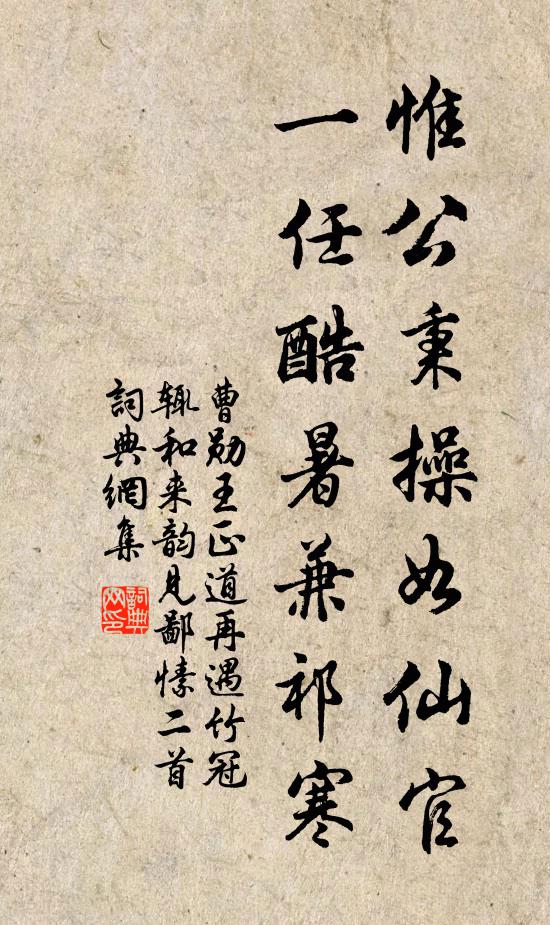 惟公秉操如仙官
一任酷暑兼祁寒
曹勋王正道再遇竹冠
辄和来韵见鄙愫二首
詞典網集
詞典網印